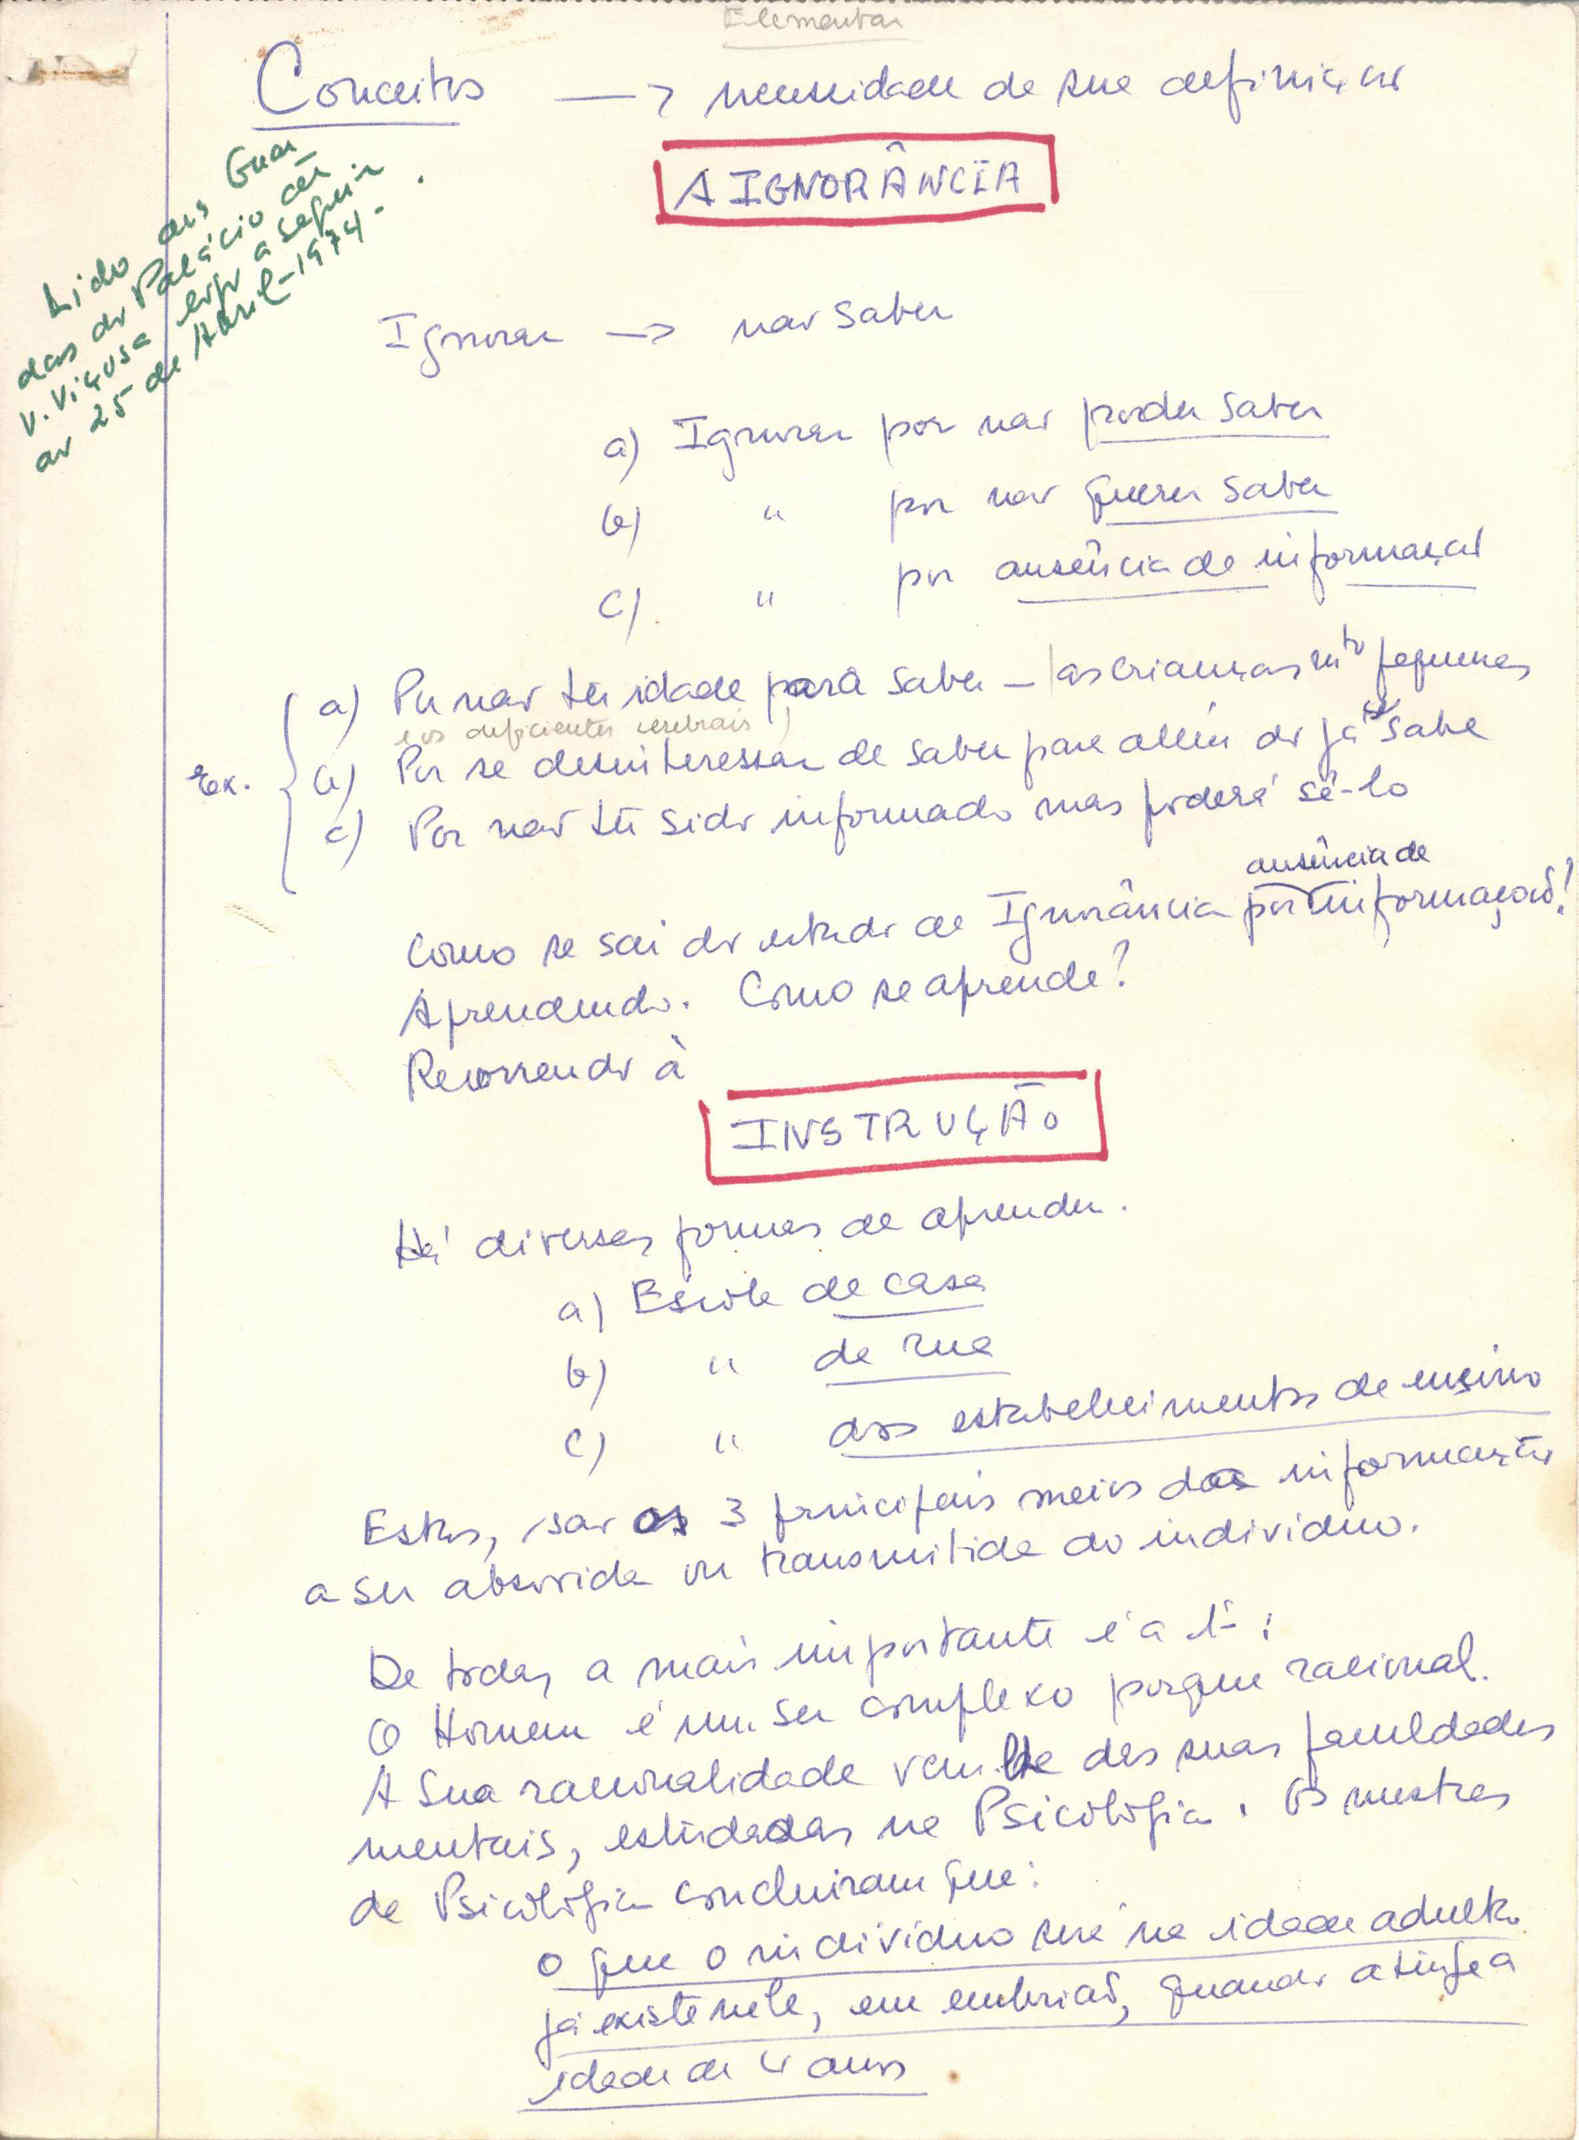 Elementar
Conceitos → necessidade de sua definição
A IGNORÂNCIA
Lido aos Guar
das do Palácio de
V. Viçosa logo a seguir
ao 25 de Abril-1974-
Ignorar → não saber
a) Ignorar por não poder saber
b) " por não querer saber
c) " por ausência de informação
Ex.
a) Por não ter idade para saber - as crianças mto pequenas
e os deficientes cerebrais
b) Por se desinteressar de saber para além do já se sabe
c) Por não ter sido informado mas poderá sê-lo
ausência de
Como se sai do estado de Ignorância por informação?
Aprendendo. Como se aprende?
Recorrendo à
INSTRUÇÃO
Há diversas formas de aprender.
a) Escola de casa
b) " da rua
c) " dos estabelecimentos de ensino
Estes, são os 3 principais meios das informações
a ser absorvida ou transmitida ao indivíduo.
De todas a mais importante é a 1ª:
O Homem é um ser complexo porque racional.
A sua racionalidade vem-lhe das suas faculdades
mentais, estudadas na Psicologia. Os mestres
de Psicologia concluiram que:
o que o indivíduo será na idade adulta
já existe nele, em embrião, quando atinge a
idade de 4 anos